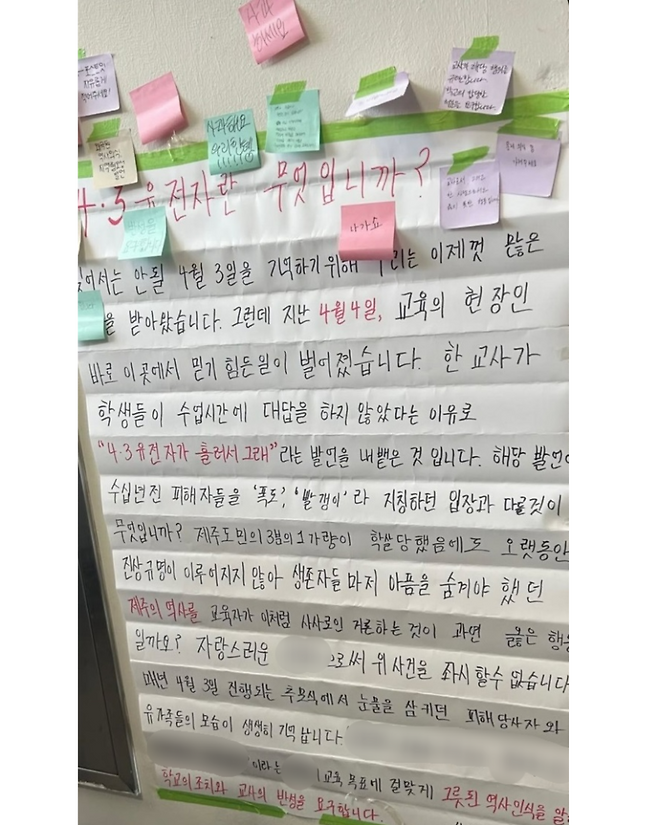 사과
하세요
사과해요
나가요
4·3 유전자란 무엇입니까?
잊어서는 안될 4월 3일을 기억하기위해 우리는 이제껏 많은
을 받아왔습니다. 그런데 지난 4월 4일, 교육의 현장인
바로 이곳에서 믿기 힘든일이 벌어졌습니다. 한 교사가
학생들이 수업시간에 대답을 하지 않았다는 이유로
"4·3유전자가 흘러서 그래"라는 발언을 내뱉은 것 입니다. 해당 발언이
수십년전 피해자들을 '폭도', '빨갱이'라 지칭하던 입장과 다를것이
무엇입니까? 제주도민의 3분의 1 가량이 학살 당했음에도 오랫동안
진상규명이 이루어지지 않아 생존자들 마저 아픔을 숨겨야 했던
제주의 역사를 교육자가 이처럼 사사로이 거론하는 것이 과연 옳은 행동
일까요? 자랑스러운 으로써 위 사건을 좌시 할수 없습니다
매년 4월 3일 진행되는 추모식에서 눈물을 삼키던 피해당사자와
유가족들의 모습이 생생히 기억납니다.
이라는 교육 목표에 걸맞게 그릇된 역사인식을
학교의 조치와 교사의 반성을 요구합니다.